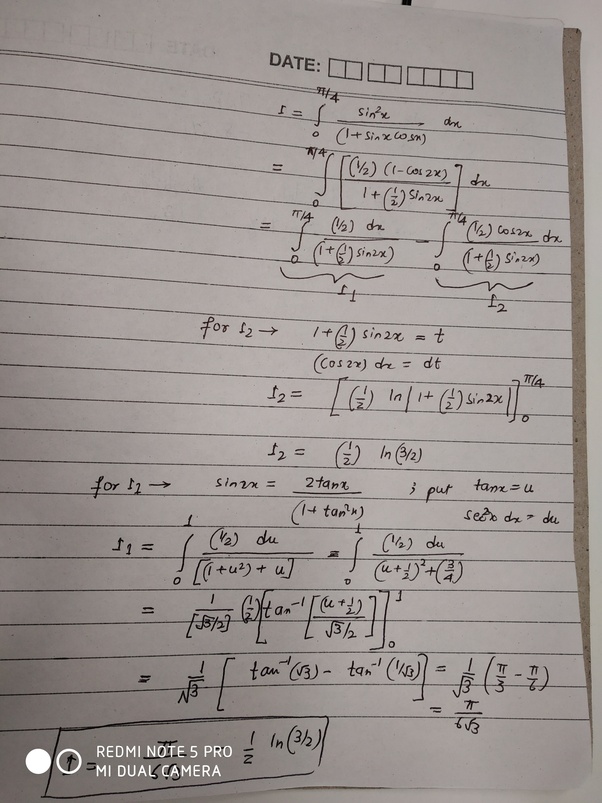 DATE:
I = ∫₀^{π/4} sin²x / (1 + sinx cosx) dx
= ∫₀^{π/4} [ (1/2) (1 - cos2x) / 1 + (1/2) sin2x ] dx
= ∫₀^{π/4} (1/2) dx / (1 + (1/2) sin2x) - ∫₀^{π/4} (1/2) cos2x dx / (1 + (1/2) sin2x)
I₁ I₂
for I₂ → 1 + (1/2) sin2x = t
(cos2x) dx = dt
I₂ = [ (1/2) ln | 1 + (1/2) sin2x | ]₀^{π/4}
I₂ = (1/2) ln (3/2)
for I₁ → sin2x = 2tanx / (1 + tan²x) ; put tanx = u
sec²x dx = du
I₁ = ∫₀¹ (1/2) du / [(1 + u²) + u] = ∫₀¹ (1/2) du / (u + 1/2)² + (3/4)
= 1 / [√3/2] (1/2) [ tan⁻¹ [ (u + 1/2) / √3/2 ] ]₀¹
= 1/√3 [ tan⁻¹(√3) - tan⁻¹(1/√3) ] = 1/√3 (π/3 - π/6)
= π / 6√3
I = π / 6√3 - 1/2 ln (3/2)
REDMI NOTE 5 PRO
MI DUAL CAMERA